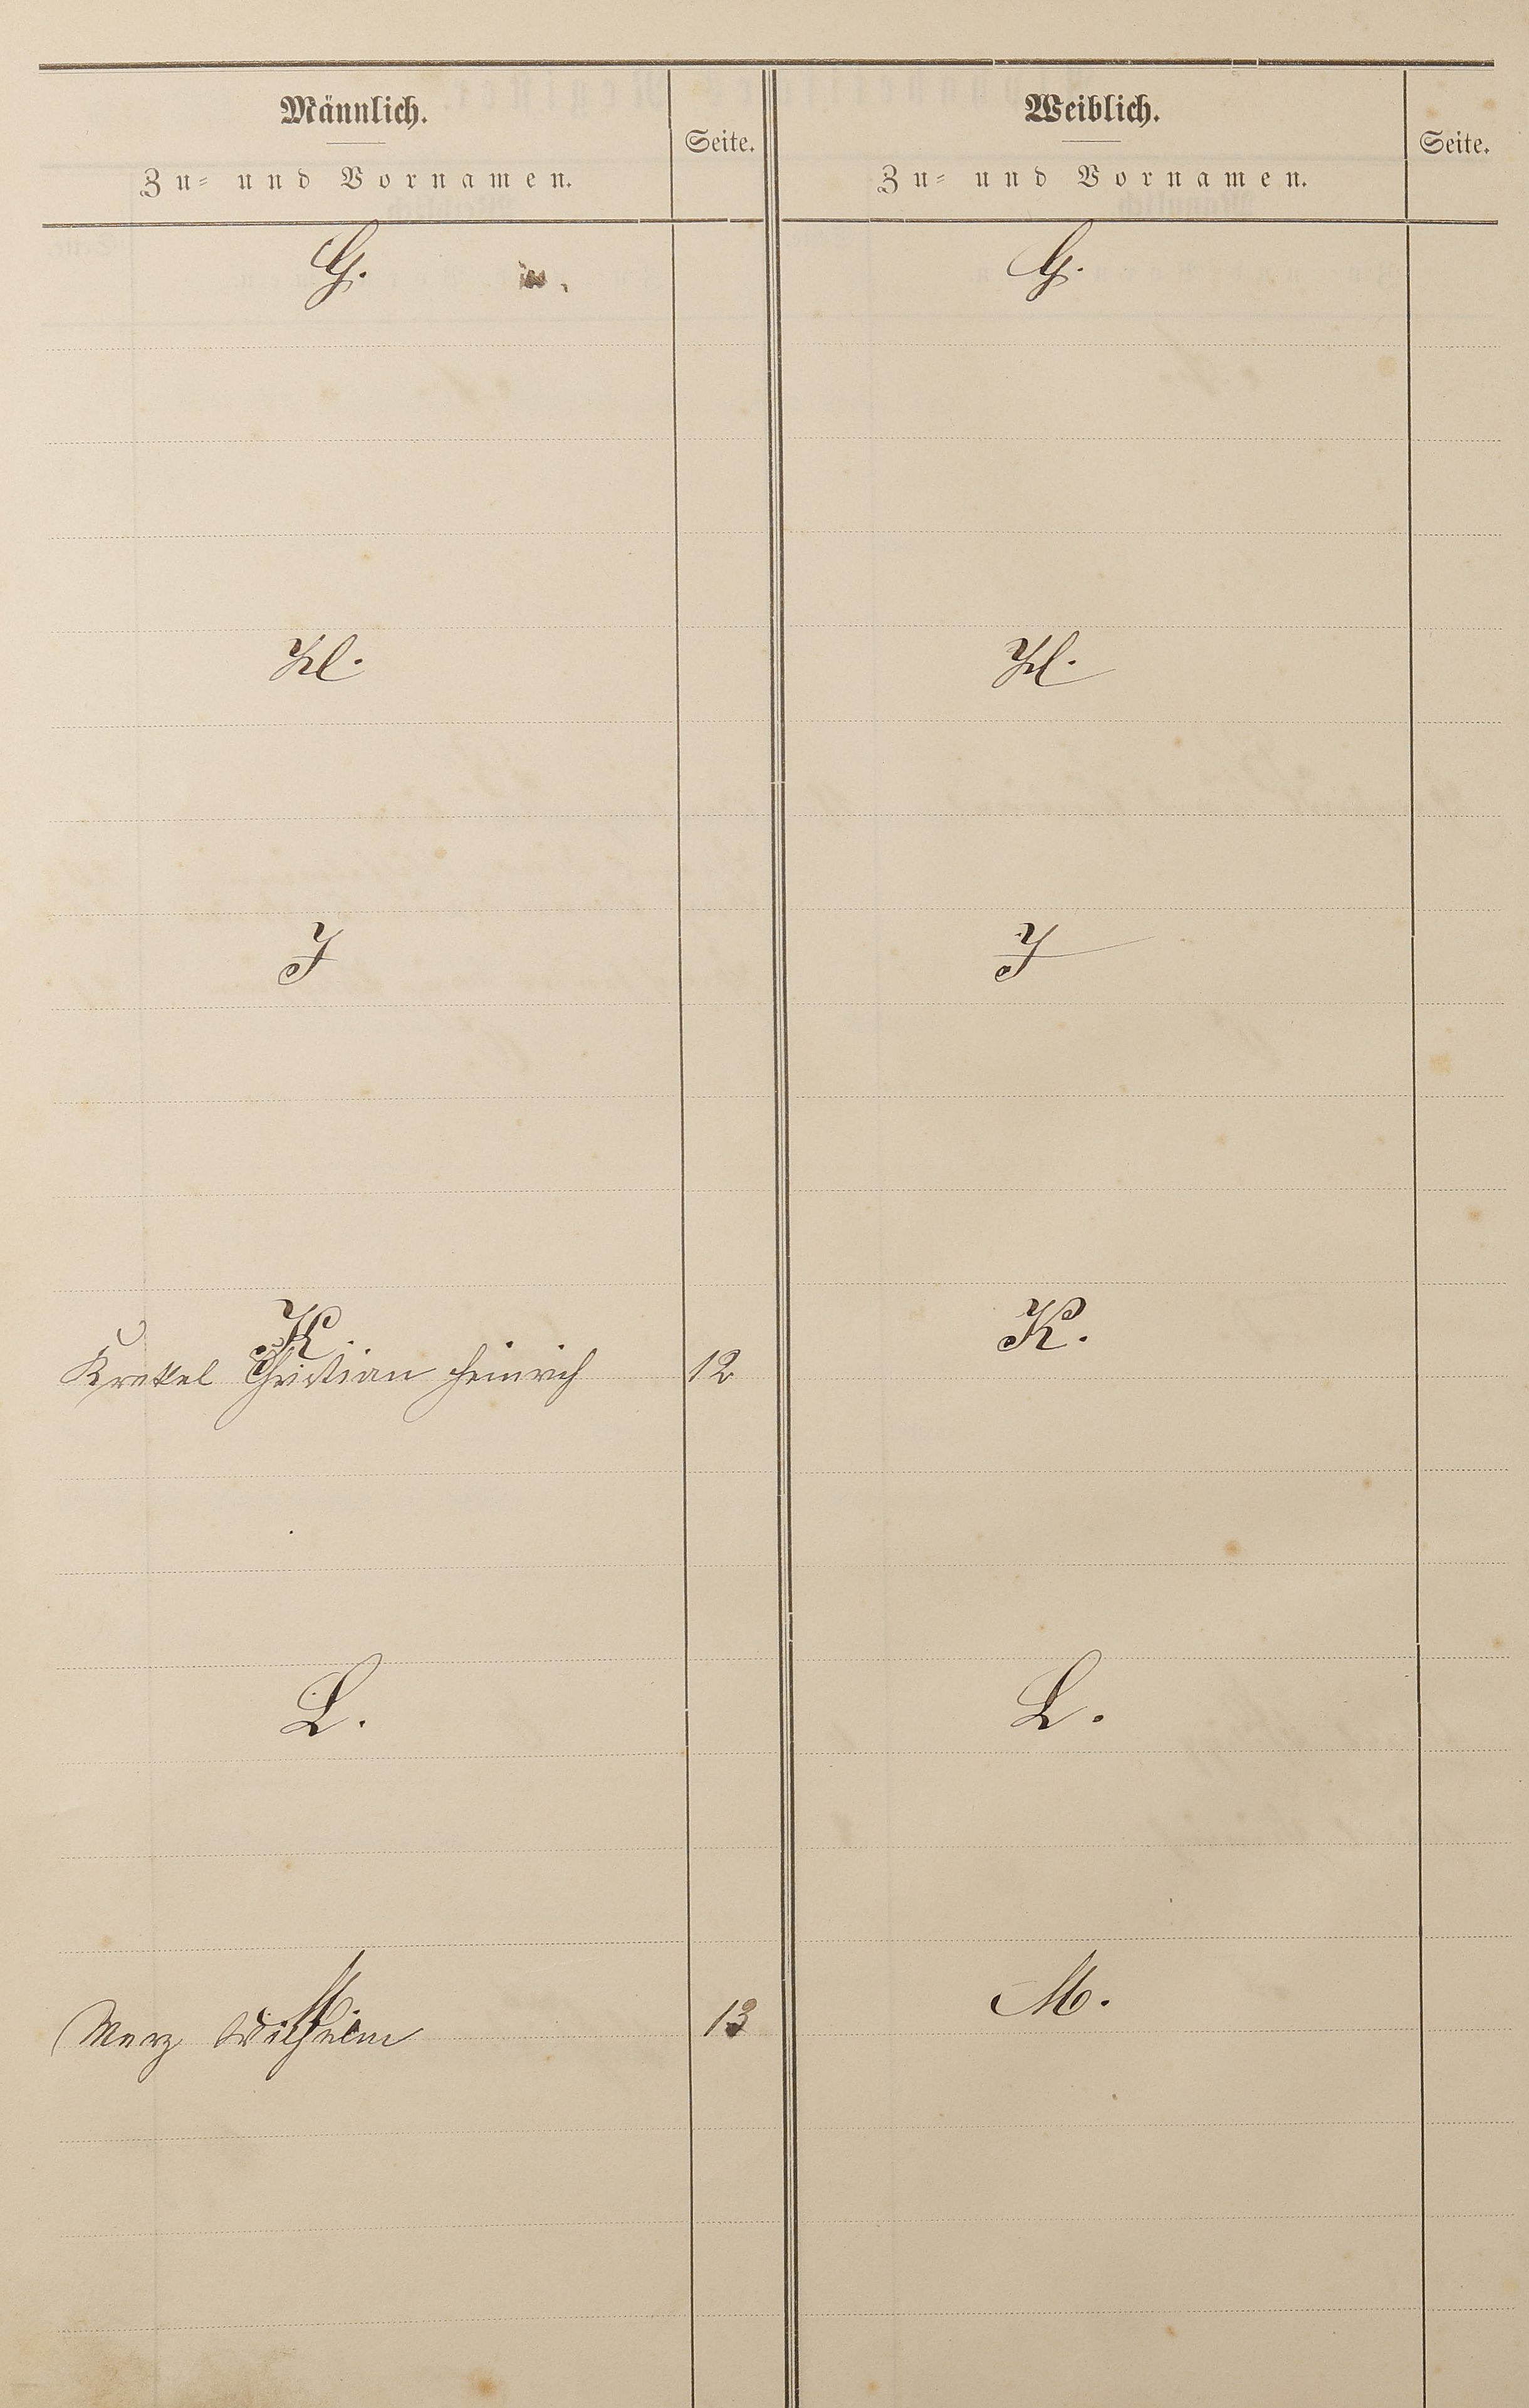 Männlich.
Zu- und Vornamen.
Seite.
Weiblich.
Zu- und Vornamen.
Seite.
G.
G.
H.
H.
J
J
K.
K.
Krekel Christian Heinrich 12
L.
L.
M.
M.
Merz Wilhelm 13